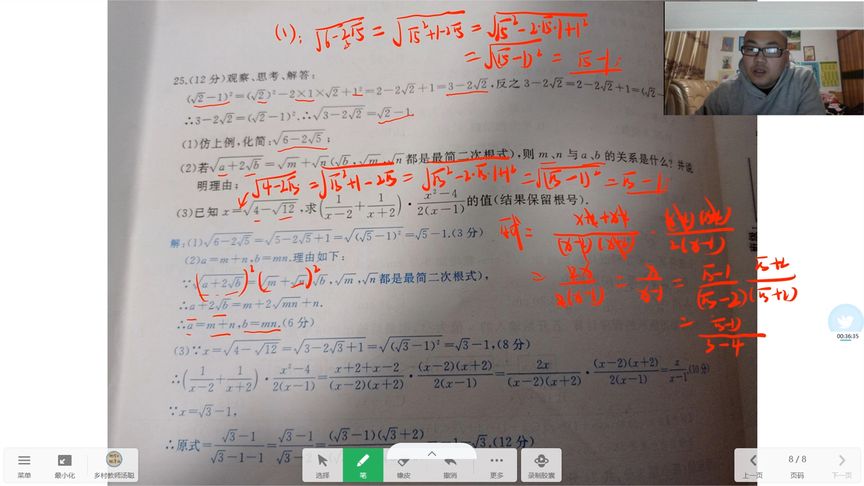 (1): √6-2√5 = √√5²+1-2√5 = √√5²-2·√5·1+1²
= √(√5-1)² = √5-1;
25.(12分)观察、思考、解答:
(√2-1)²=(√2)²-2×1×√2+1²=2-2√2+1=3-2√2,反之3-2√2=2-2√2+1=(√2-
∴3-2√2=(√2-1)².∴√3-2√2=√2-1
(1)仿上例,化简:√6-2√5;
(2)若√a+2√b=√m+√n(√b,√m,√n都是最简二次根式),则m、n与a、b的关系是什么?并说
明理由;
√4-2√3 = √√3²+1-2√3 = √√3²-2·√3·1+1² = √(√3-1)² = √3-1
(3)已知x=√4-√12,求(1/x-2+1/x+2)·x²-4/2(x-1)的值(结果保留根号).
解:(1)√6-2√5=√5-2√5+1=√(√5-1)²=√5-1.(3分)
(2)a=m+n,b=mn.理由如下:
∵(√a+2√b)²=(√m+√n)²(√b,√m,√n都是最简二次根式),
∴a+2√b=m+2√mn+n.
∴a=m+n,b=mn.(6分)
(3)∵x=√4-√12=√3-2√3+1=√(√3-1)²=√3-1,(8分)
∴(1/x-2+1/x+2)·x²-4/2(x-1)=x+2+x-2/(x-2)(x+2)·(x-2)(x+2)/2(x-1)=2x/(x-2)(x+2)·(x-2)(x+2)/2(x-1)=x/x-1.(10分)
∵x=√3-1,
∴原式=√3-1/√3-1-1=√3-1/√3-
(√3-1)(√3+2)
(12分)
00:36:35
菜单 最小化 乡村教师汤聪 选择 笔 橡皮 撤消 更多 录制胶囊 上一页 8/8 页码 下一页